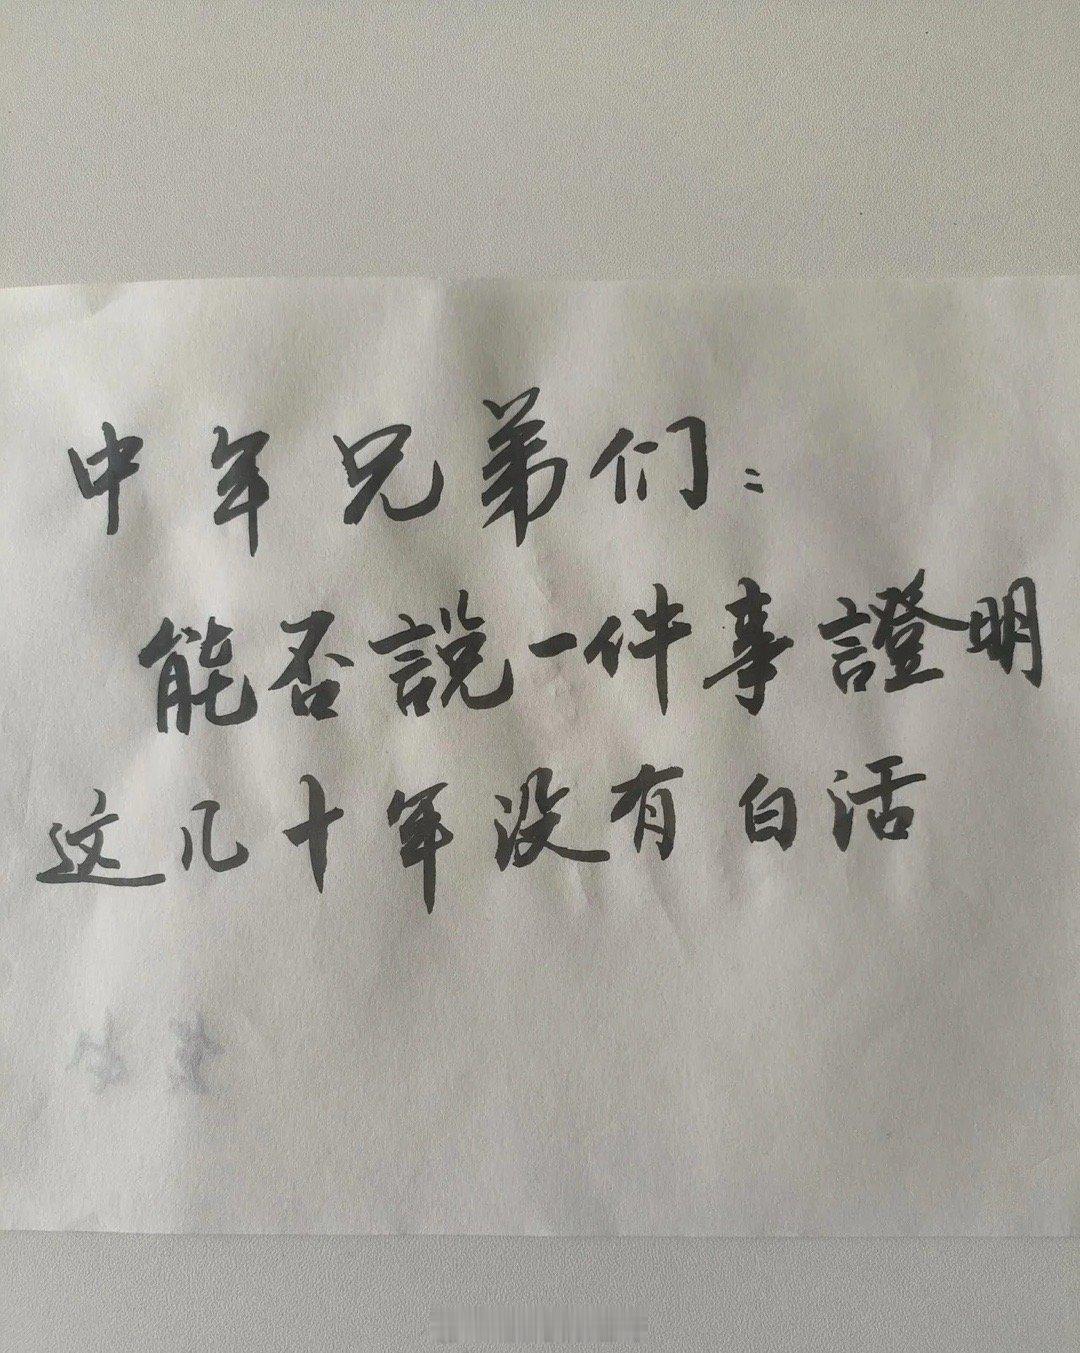 中年兄弟们：
能否説一件事證明
这几十年没有白活